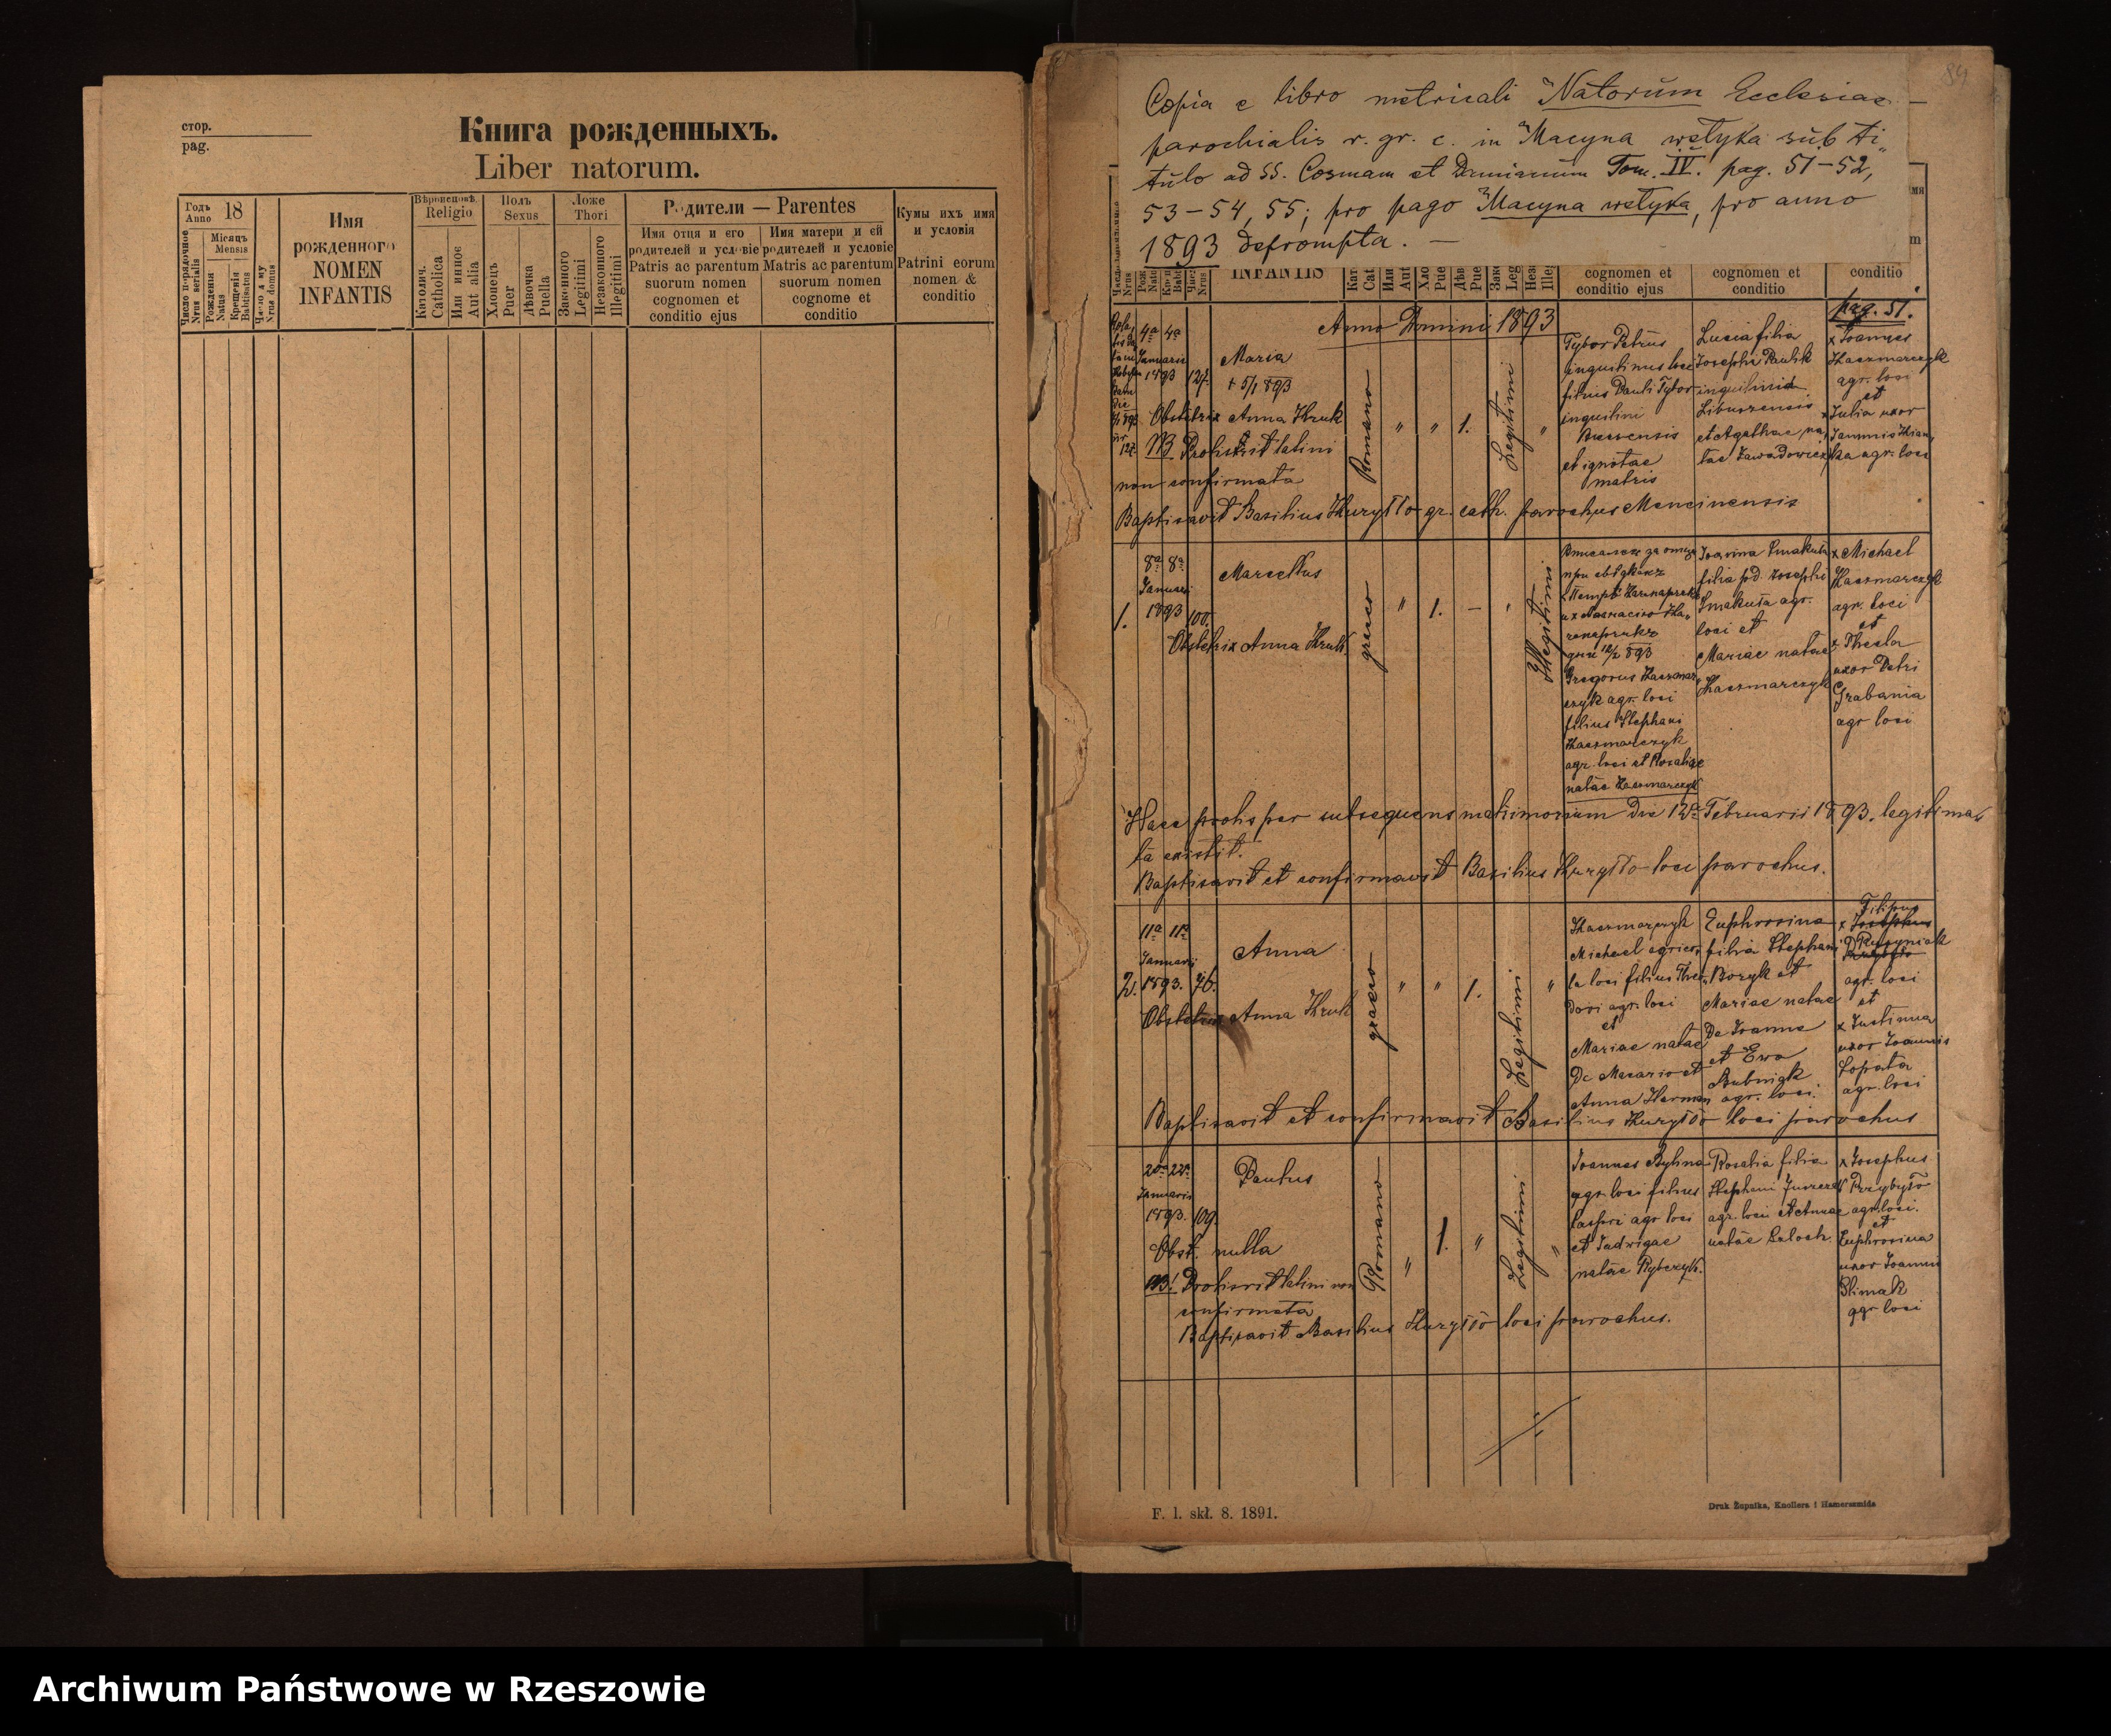 стор.
pag.
Книга рожденныхъ.
Liber natorum.
Годъ
Anno 18
Місяцъ
Mensis
Число порядочное
Nrus serialis
Рожденія
Natus
Крещенія
Babtisatus
Число дому
Nrus domus
Имя
рожденного
NOMEN
INFANTIS
Religio
Католич.
Catholica
Или инное
Aut alia
Полъ
Sexus
Хлопецъ
Puer
Дѣвочка
Puella
Ложе
Thori
Законного
Legitimi
Незаконного
Illegitimi
Родители — Parentes
Имя отця и его
родителей и условіе
Patris ac parentum
suorum nomen
cognomen et
conditio ejus
Имя матери и ей
родителей и условіе
Matris ac parentum
suorum nomen
cognome et
conditio
Кумы ихъ имя
и условія
Patrini eorum
nomen &
conditio
84
Copia e libro metricali Natorum Ecclesiae
parochialis r. gr. c. in Macyna wełyka sub ti„
tulo ad SS. Cosmam et Damianum Tom. IV. pag. 51–52,
53–54, 55; pro pago Macyna wełyka, pro anno
1893 deprompta. —
INFANTIS
cognomen et
conditio ejus
cognomen et
conditio
conditio
pag. 51.
Anno Domini 1893
4a 4a
Januarii
1893 127.
Maria
+ 5/1 893
Obstetrix Anna Hruk
NB Proles rit latini
non confirmata
Romano
" " 1.
Legitimi
"
Tybor Petrus
inquilinus loci
filius Pauli Tybor
inquilini
et ignotae
matris
Lucia filia
Josephi Paulik
inquilini
et Agathae na„
tae Zawadowicz
x Joannes
Kaczmarczyk
agr. loci
et
x Julia uxor
ka agr. loci
Baptisavit Basilius Kuryłło gr. cath. parochus Mencinensis
1.
8a 8a
Januarii
1893 100.
Marcellus
Obstetrix Anna Hruk
graeco
" 1. — "
Illegitimi
дня 12/2 893
Gregorius Kaczmar„
czyk agr. loci
filius Stephani
Kaczmarczyk
agr. loci et Rosaliae
natae Kaczmarczyk
Joanna Smakuła
filia pd. Josephi
Smakuła agr.
loci et
Mariae natae
Kaczmarczyk
x Michael
Kaczmarczyk
agr. loci
et
x Thecla
uxor Petri
Grabania
agr loci
Haec proles per subsequens matrimonium die 12a Februarii 1893. legitima„
ta existit.
Baptisavit et confirmavit Basilius Kuryłło loci parochus.
2.
11a 11a
Januarii
1893. 76.
Anna
Obstetrix Anna Hruk
graeco
" " 1.
Legitimi
"
Kaczmarczyk
Michael agrico„
la loci filius Theo„
dori agr. loci
et
Mariae natae
De Macario et
Anna Herman
Euphrosina
filia Stephani
Boryk et
Mariae natae
De Joanne
et Ewa
Bubniak
agr. loci.
Filipus
x Josephus
Dkusyniak
agr. loci
et
x Justinna
uxor Joannis
Łopata
agr. loci
Baptisavit et confirmavit Basilius Kuryłło loci parochus
20a 22a
Januarii
1893. 109.
Paulus
Obst. nulla
NB! Proles rit latini non
confirmata
Romano
" 1. "
Legitimi
"
Joannes Bylina
agr. loci filius
Caspri agr loci
et Jadwigae
natae Rybczyk.
Rosalia filia
agr. loci et Annae
natae Caloch.
x Josephus
Przybyło
agr. loci.
et
Euphrosina
uxor Joannis
Klimak
agr loci
Baptisavit Basilius Kuryłło loci parochus.
F. l. skł. 8. 1891.
Druk Żupnika, Knollera i Hamerszmida
Archiwum Państwowe w Rzeszowie